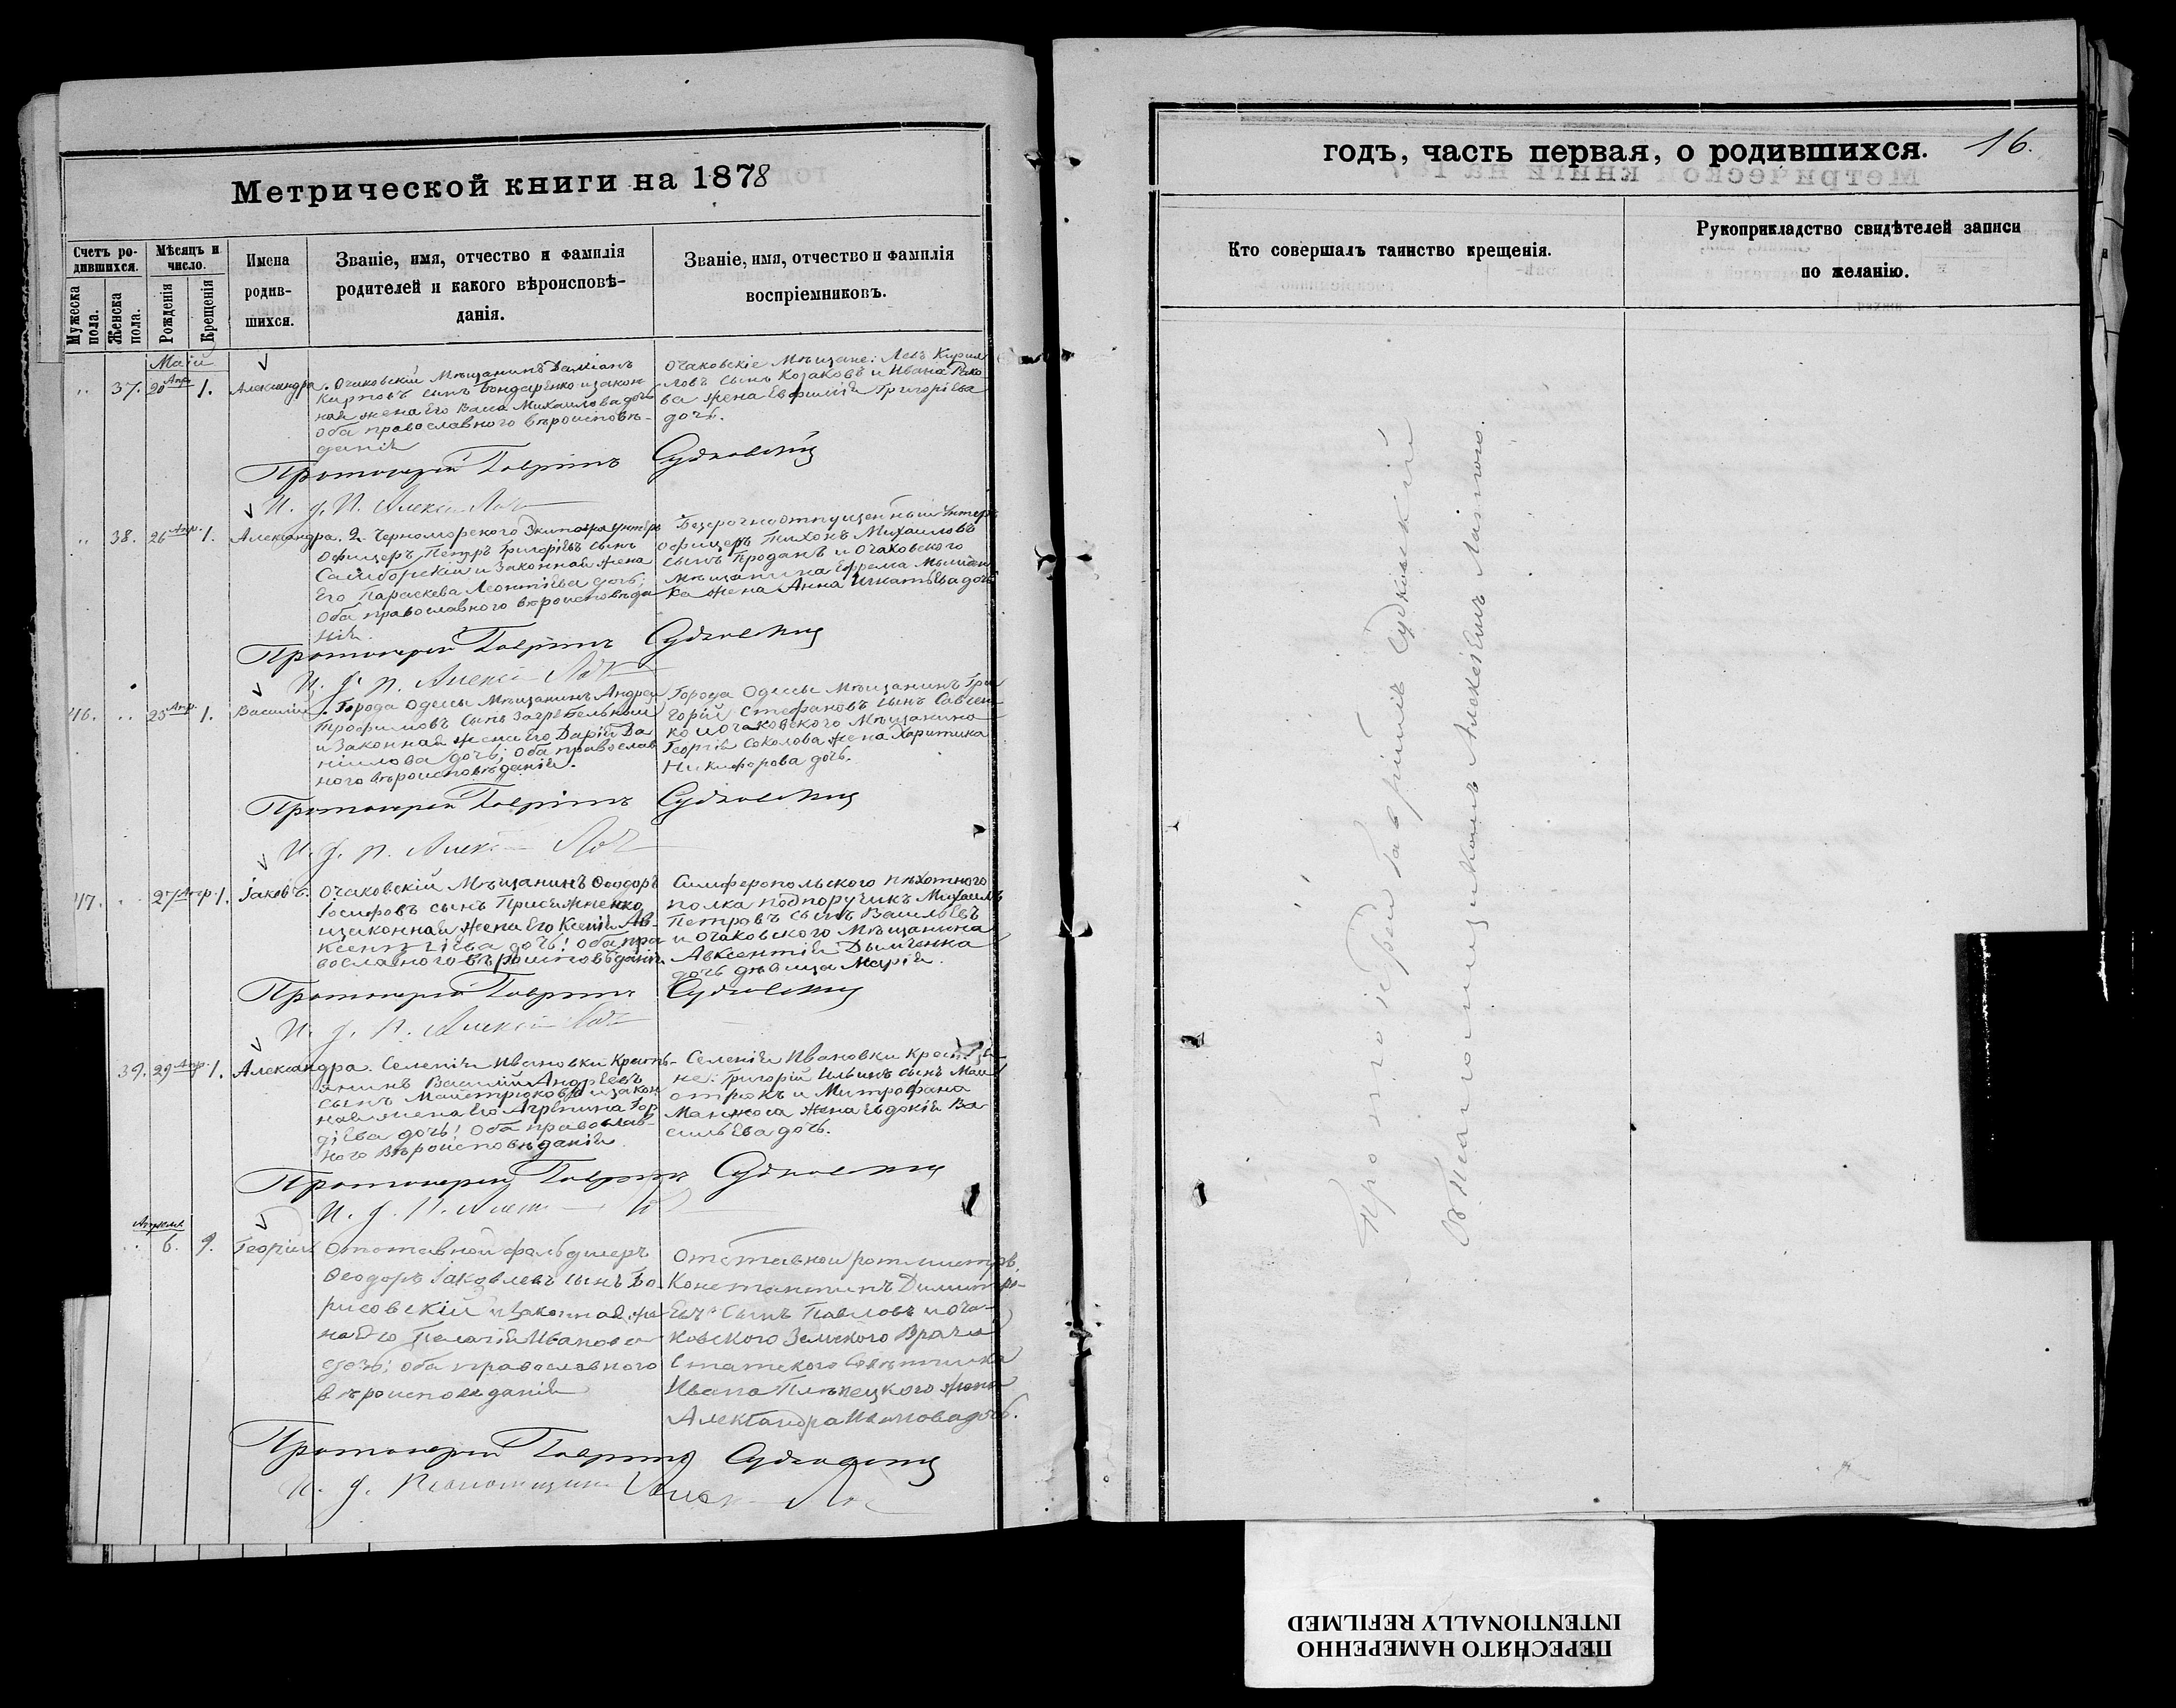 Метрической книги на 1878
Счетъ родившихся.
Мужеска пола.
Женска пола.
Мѣсяцъ и число.
Рожденія
Крещенія
Имена родившихся.
Званіе, имя, отчество и фамилія
родителей и какого вѣроисповѣ-
данія.
Званіе, имя, отчество и фамилія
воспріемниковъ.
Маій
37. 20 Апр. 1. Александра.
Очаковскій Мѣщанинъ Даміанъ
Карповъ сынъ Бондаренко и закон
ная жена его Васса Михаилова дочь
оба православного вѣроисповѣ-
данія
Очаковскіе Мѣщане: Левъ Кирил
ловъ сынъ Козаковъ и Ивана
ва жена Евфимія Григоріева
дочь.
Протоіерей Гавріилъ Судковскій
И. д. П. Алексій
38. 26 Апр. 1. Александра.
2. Черноморского Экипажа унтеръ
офицеръ Петръ Григоріевъ сынъ
Самборскій и Законная жена
Его Параскева Леонтіева дочь;
Оба православного вѣроисповѣда
нія.
Безсрочноотпущенный Унтеръ
офицеръ Тихонъ Михаиловъ
сынъ Проданъ и Очаковского
Мѣщанина Ефрема
ка жена Анна Игнатьева дочь
Протоіерей Гавріилъ Судковскій
И. д. п. Алексій
46. 25 Апр. 1. Василій
Города Одессы Мѣщанинъ Андрей
Трофимовъ сынъ Загребельный
и Законная жена Его Дарія Да
ніилова дочь; Оба православ
ного вѣроисповѣданія.
Города Одессы Мѣщанинъ Гри
горій Стефановъ сынъ Савчен
ко и очаковского Мѣщанина
Георгія Соколова жена Харитина
Никифорова дочь.
Протоіерей Гавріилъ Судковскій
И. д. п. Алексій
47. 27 Апр. 1. Іаковъ.
Очаковскій Мѣщанинъ Ѳеодоръ
Іосифовъ сынъ Присяжненко
и законная жена Его Ксенія Ав-
ксентіева дочь! Оба пра
вославного вѣроисповѣданія.
Симферопольского пѣхотного
полка подпоручикъ Михаилъ
Петровъ сынъ Васильевъ
и Очаковского Мѣщанина
Авксентія Дымченка
дочь дѣвица Марія.
Протоіерей Гавріилъ Судковскій
И. д. п. Алексій
39. 29 Апр. 1. Александра.
Селенія Ивановки Крестья-
нинъ Василій Андреевъ
сынъ Майстрюковъ и закон
ная жена Его Агрепина Гор
діева дочь! Оба православ-
ного Вѣроисповѣданія.
Селенія Ивановки Крестья-
не: Григорій Ильинъ сынъ
и Митрофана
Манжоса жена Евдокія Ва
сильева дочь.
Протоіерей Гавріилъ Судковскій
И. д. П. Алексій
Апрель
6. 9. Георгій
Отставной фельдшеръ
Ѳеодоръ Іаковлевъ сынъ Бо-
рисовскій и Законная же-
на Его Пелагія Иванова
дочь; оба православного
вѣроисповѣданія
Отставной ротмистръ
Константинъ Димитрі-
евъ сынъ Павловъ и Оча-
ковского Земского Врача
Статского Совѣтника
Ивана жена
Александра Иванова дочь.
Протоіерей Гавріилъ Судковскій
И. д. Псаломщика Алексій
годъ, часть первая, о родившихся.
16.
Кто совершалъ таинство крещенія.
Рукоприкладство свидѣтелей записи
по желанію.
Протоіерей Гавріилъ Судковскій
съ Псаломщикомъ Алексѣемъ
ПЕРЕСНЯТО НАМЕРЕННО
INTENTIONALLY REFILMED